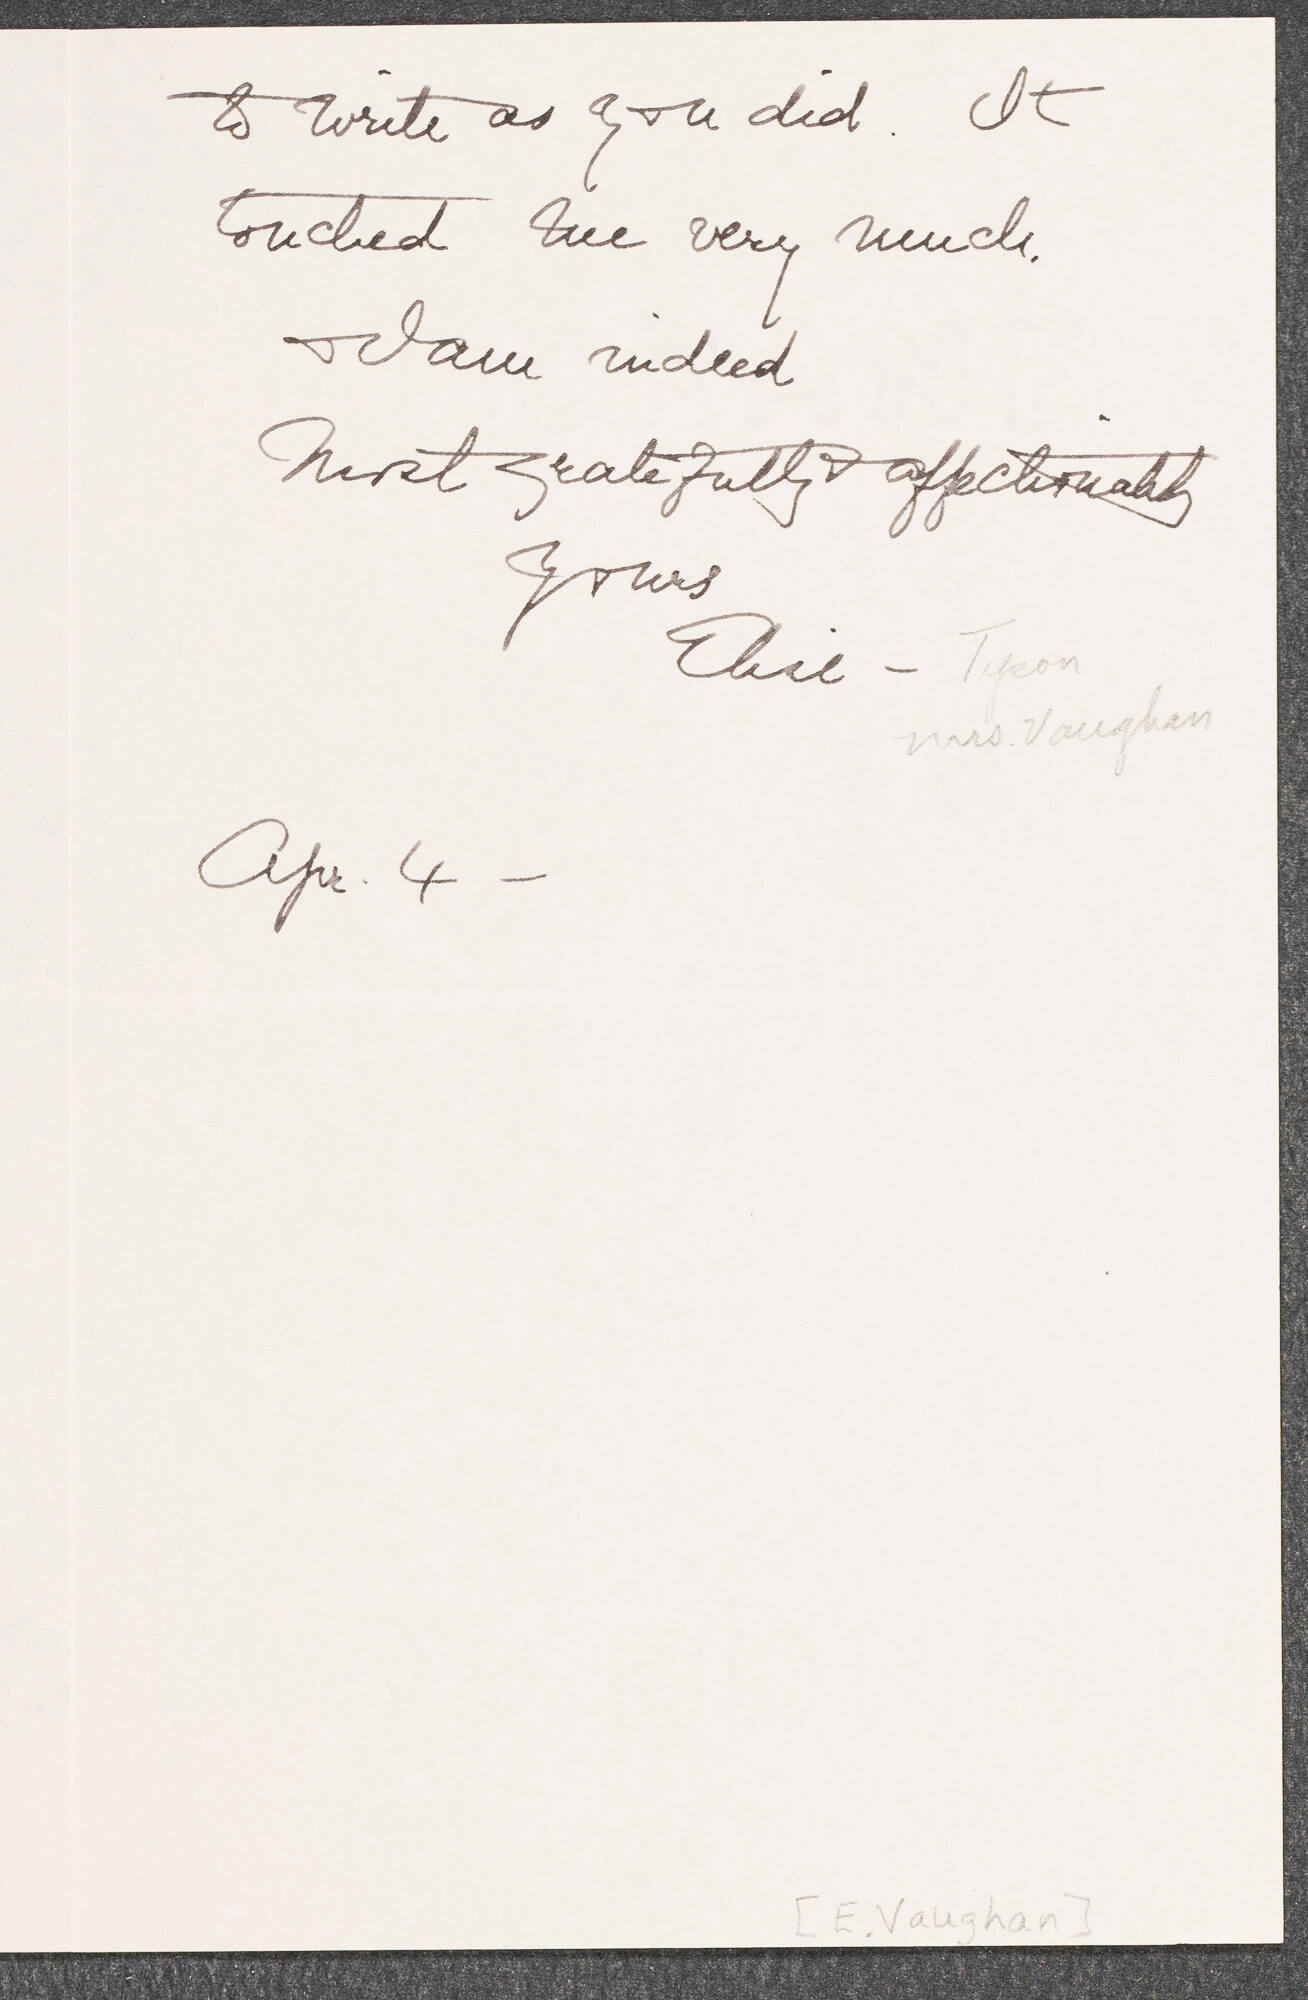 to write as you did. It
touched me very much.
& I am indeed
Most gratefully & affectionately
Yours
Elsie – Tyson
Mrs. Vaughan
Apr. 4 –
[E. Vaughan]